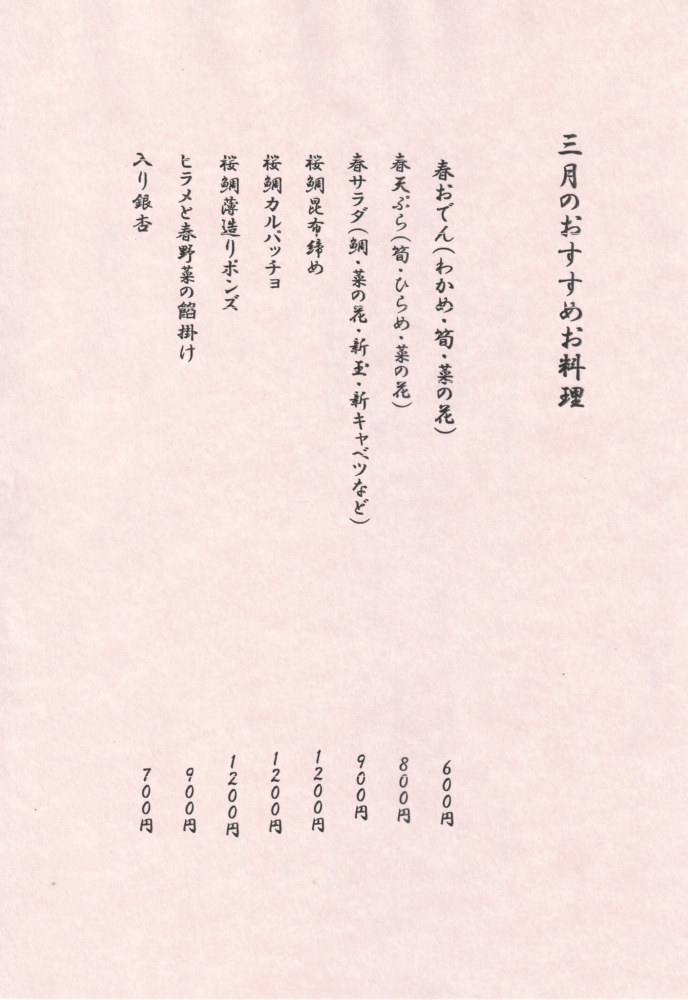 三月のおすすめお料理
春おでん(わかめ・筍・菜の花) 600円
春天ぷら(筍・ひらめ・菜の花) 800円
春サラダ(鯛・菜の花・新玉・新キャベツなど) 900円
桜鯛昆布締め 1200円
桜鯛カルパッチョ 1200円
桜鯛薄造りポンズ 1200円
ヒラメと春野菜の餡掛け 900円
入り銀杏 700円